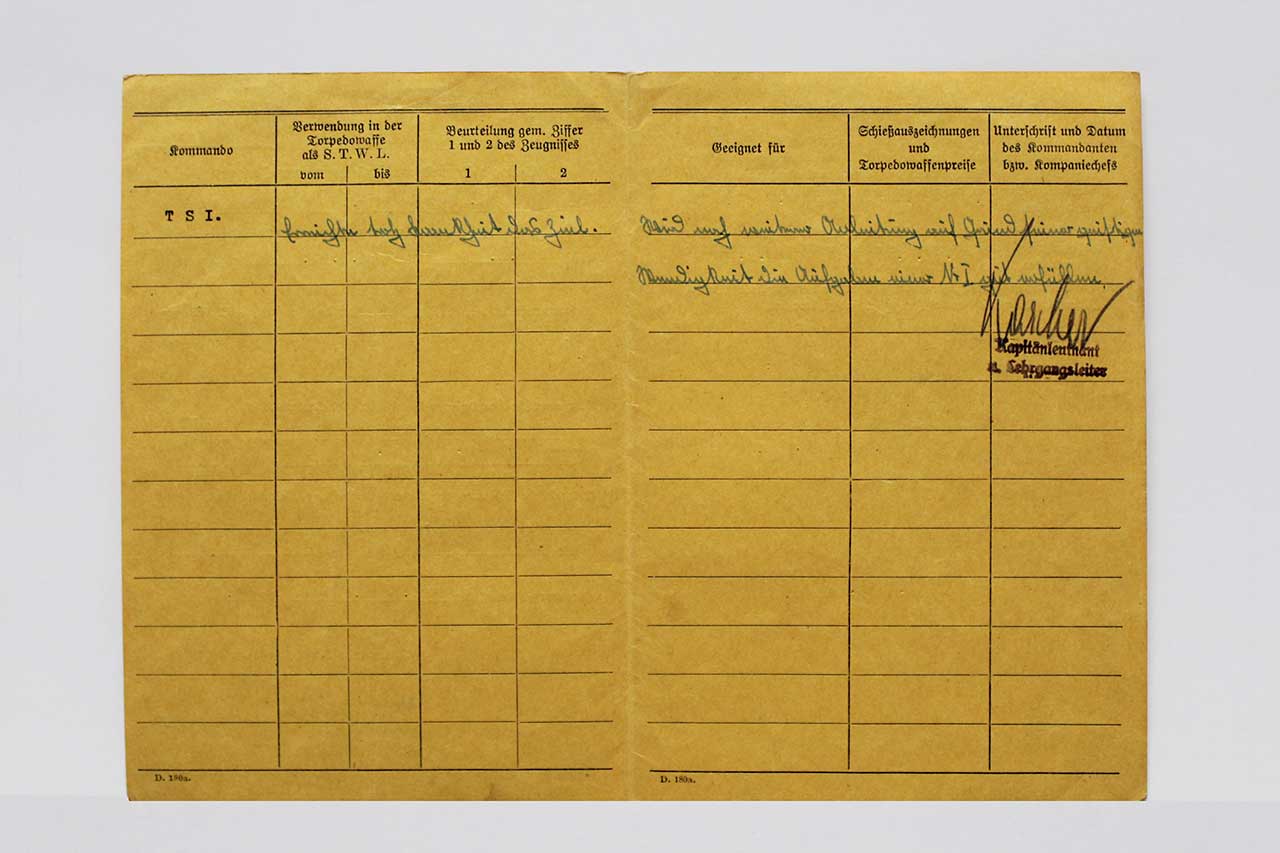 Kommando
Verwendung in der
Torpedowaffe
als S. T. W. L.
vom bis
Beurteilung gem. Ziffer
1 und 2 des Zeugnisses
1 2
T S I.
Erreichte trotz Krankheit das Ziel.
D. 180a.
Geeignet für
Schießauszeichnungen
und
Torpedowaffenpreise
Unterschrift und Datum
des Kommandanten
bzw. Kompaniechefs
Wird nach weiterer Anleitung auf Grund seiner geistigen
Wendigkeit die Aufgaben einer Nr I gut erfüllen.
Kapitänleutnant
u. Lehrgangsleiter
D. 180a.